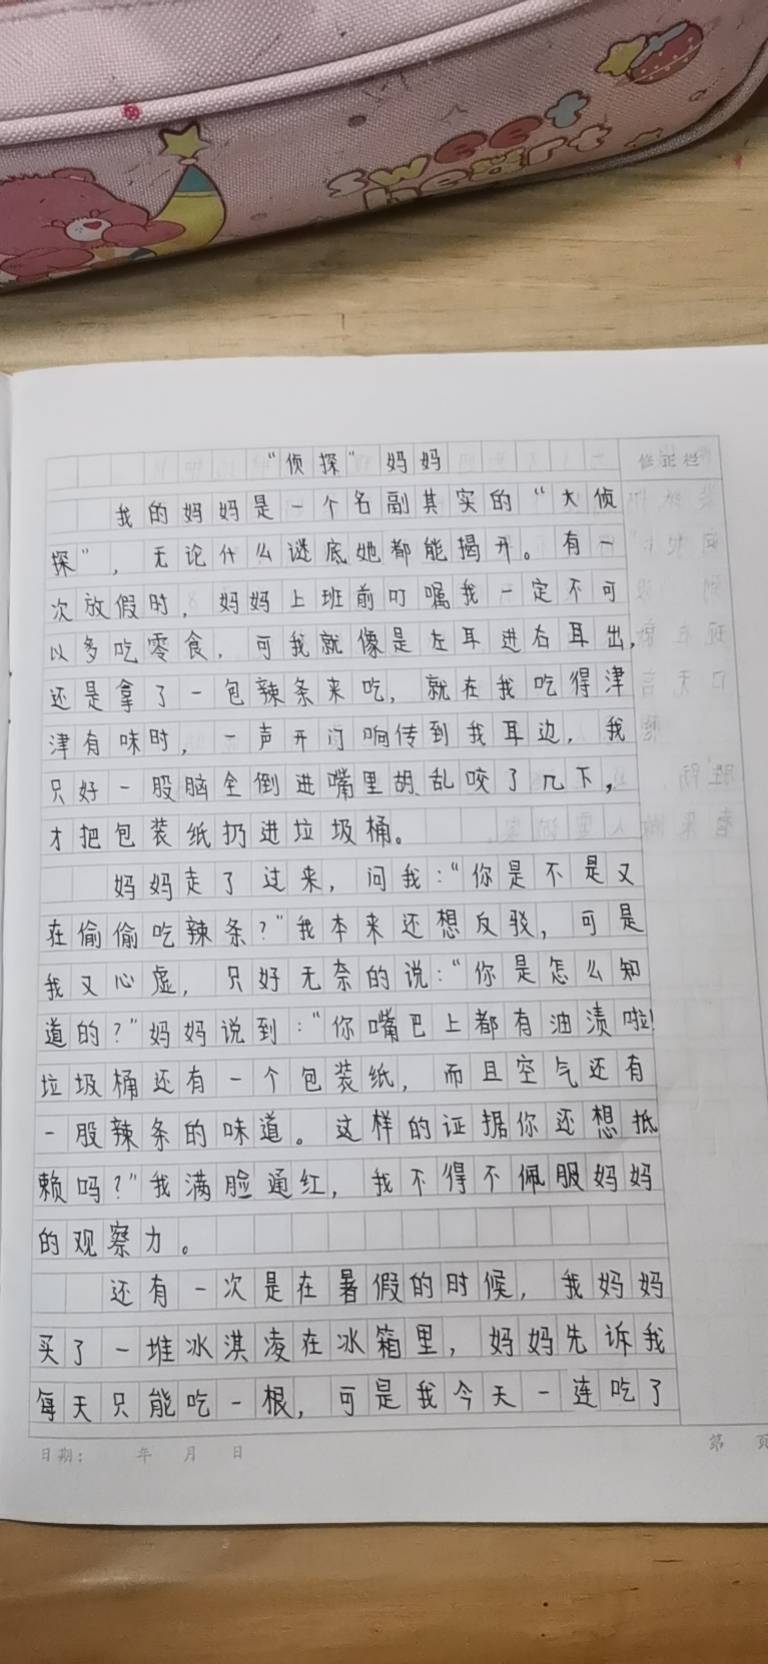 sweet
heart
"侦探"妈妈
修正栏
我的妈妈是一个名副其实的"大侦
探",无论什么谜底她都能揭开。有一
次放假时,妈妈上班前叮嘱我一定不可
以多吃零食,可我就像是左耳进右耳出,
还是拿了一包辣条来吃,就在我吃得津
津有味时,一声开门响传到我耳边,我
只好一股脑全倒进嘴里胡乱咬了几下,
才把包装纸扔进垃圾桶。
妈妈走了过来,问我:"你是不是又
在偷偷吃辣条?"我本来还想反驳,可是
我又心虚,只好无奈的说:"你是怎么知
道的?"妈妈说到:"你嘴巴上都有油渍啦!
垃圾桶还有一个包装纸,而且空气还有
一股辣条的味道。这样的证据你还想抵
赖吗?"我满脸通红,我不得不佩服妈妈
的观察力。
还有一次是在暑假的时候,我妈妈
买了一堆冰淇凌在冰箱里,妈妈先诉我
每天只能吃一根,可是我今天一连吃了
日期: 年 月 日
第 页